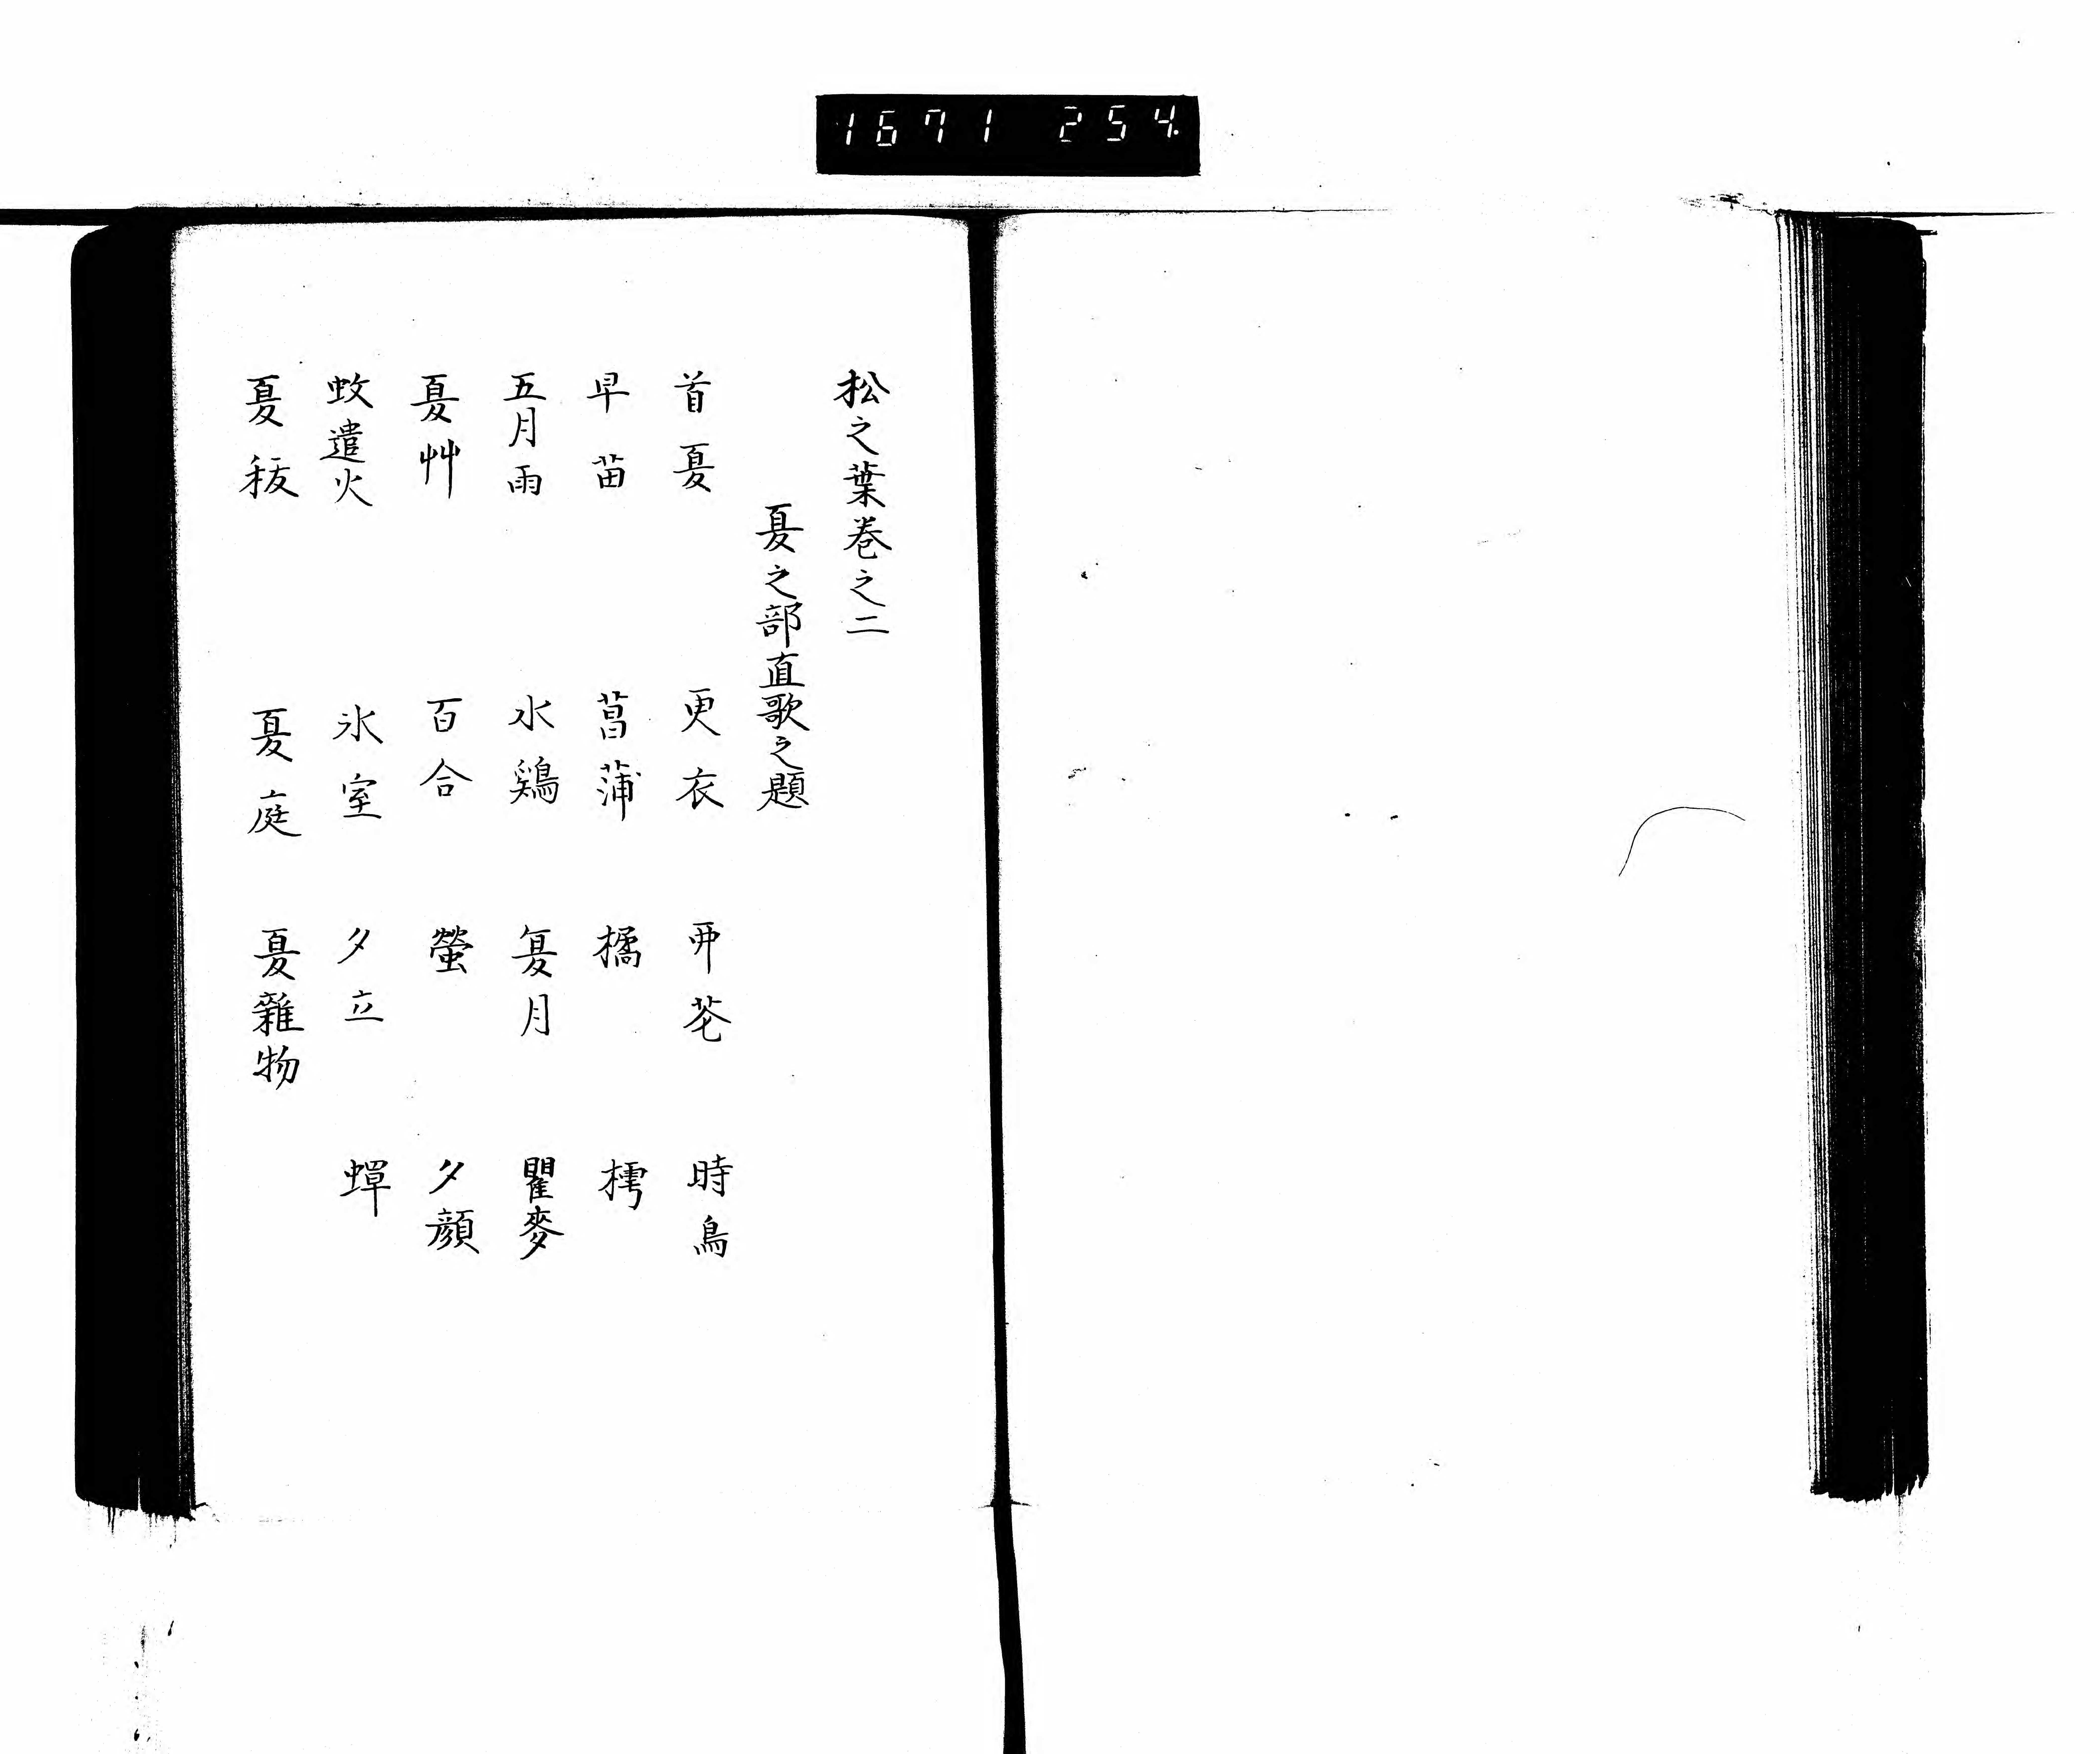 1671 254.
松之葉卷之二
夏之部直歌之題
首夏 更衣 卯花 時鳥
早苗 菖蒲 橘 樗
五月雨 水鶏 夏月 瞿麥
夏艸 百合 螢 夕顔
蚊遣火 氷室 夕立 蟬
夏秡 夏庭 夏雜物